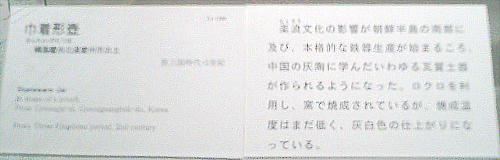 巾着形壺
Stoneware Jar
In shape of a pouch
From Gyeongju-si, Gyeongsangbuk-do, Korea
Proto Three Kingdoms period, 2nd century
楽浪文化の影響が朝鮮半島の南部に
及び、本格的な鉄器生産が始まるころ、
中国の灰陶に学んだいわゆる瓦質土器
が作られるようになった。ロクロを利
用し、窯で焼成されているが、焼成温
度はまだ低く、灰白色の仕上がりにな
っている。